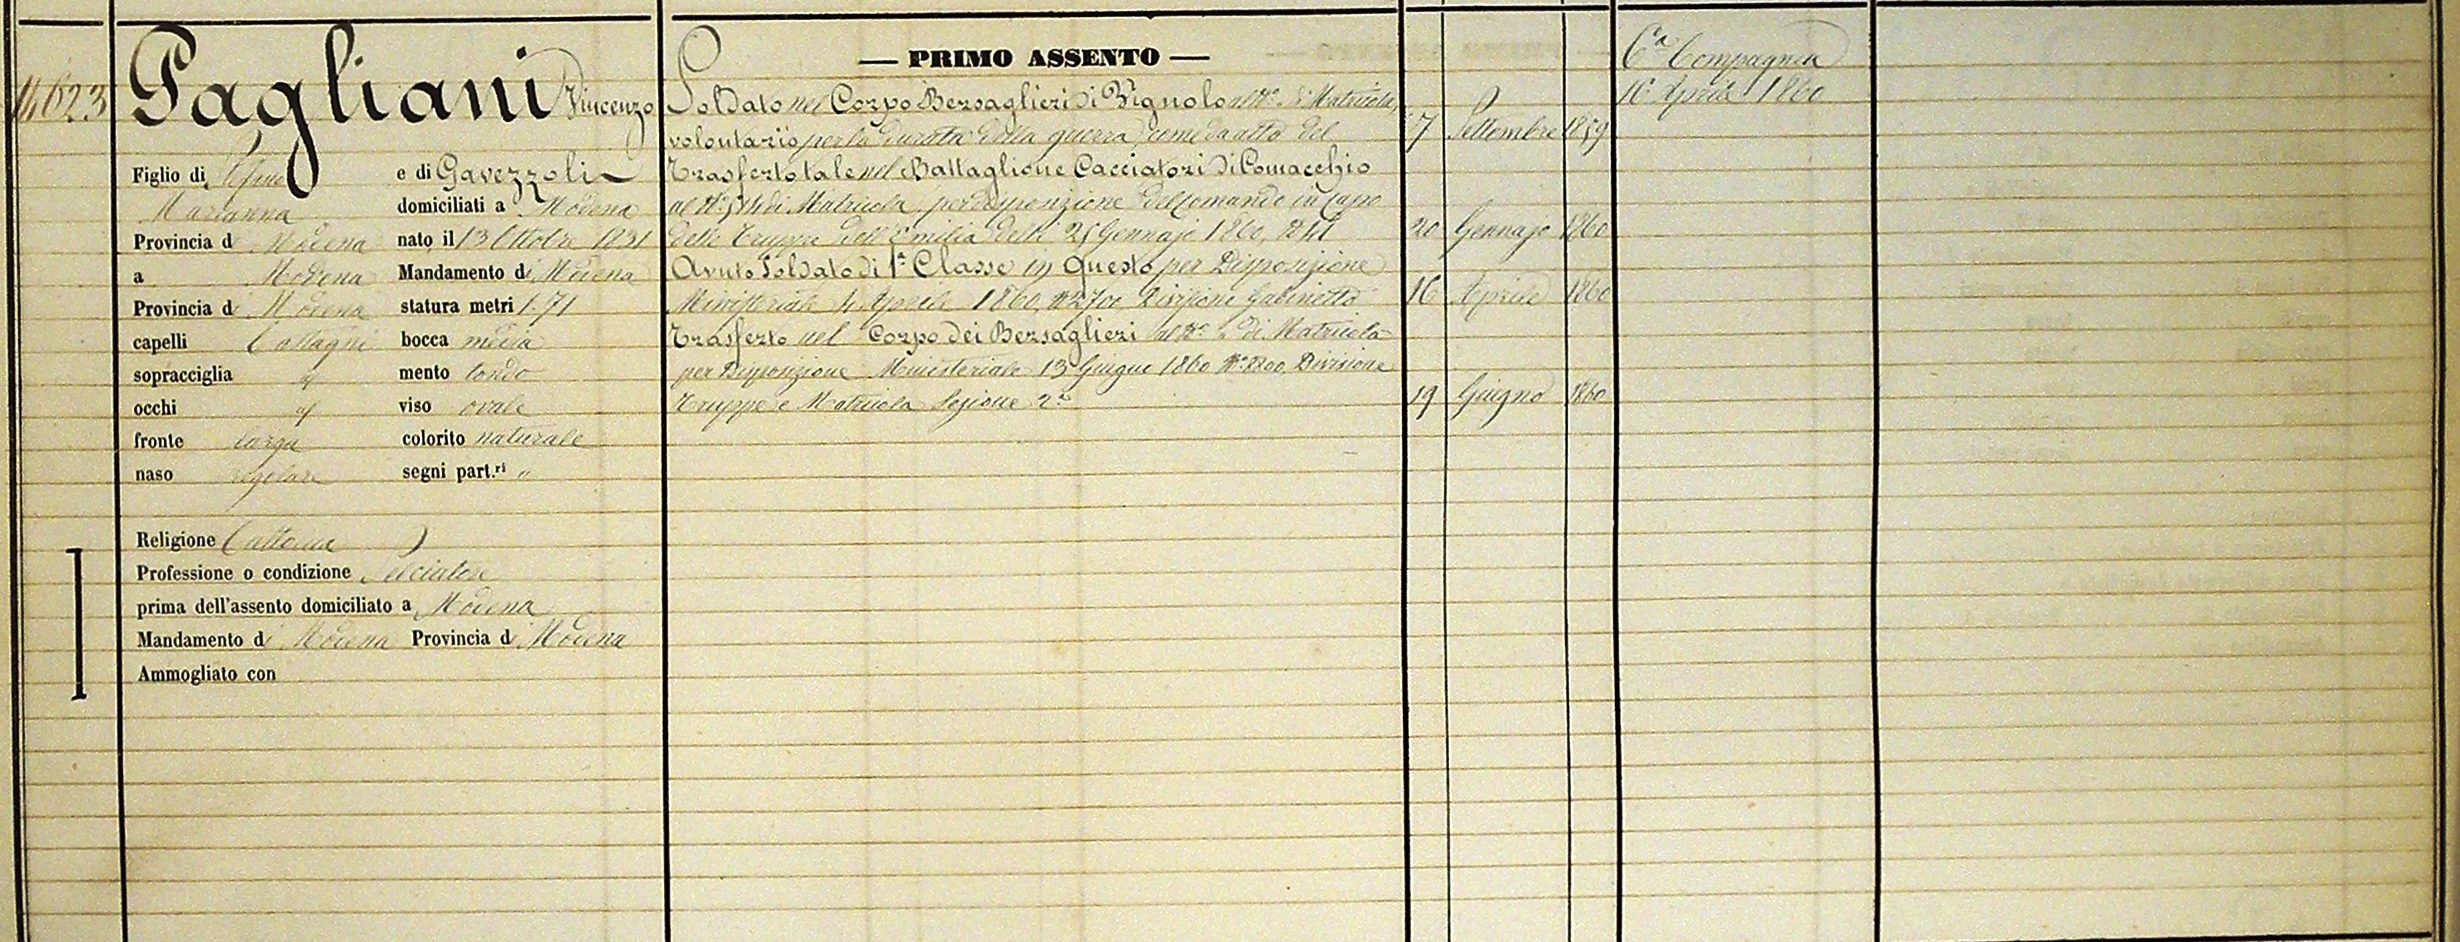 14623
Pagliani Vincenzo
Figlio di e di Gavezzoli
Marianna domiciliati a Modena
Provincia di Modena nato il 13 Ottobre 1831
a Modena Mandamento di Modena
Provincia di Modena statura metri 1.71
capelli Castagni bocca media
sopracciglia mento tondo
occhi viso ovale
fronte larga colorito naturale
naso regolare segni part.ri "
Religione Cattolica
Professione o condizione Selciatore
prima dell'assento domiciliato a Modena
Mandamento di Modena Provincia di Modena
Ammogliato con
— PRIMO ASSENTO —
Soldato nel Corpo Bersaglieri di Vignola al N.° di Matricola,
volontario per la durata della guerra, come da atto del 7 Settembre 1859
Trasferto tale nel Battaglione Cacciatori di Comacchio
al N.° di Matricola per disposizione del Comando in Capo
delle Truppe dell'Emilia delli 25 Gennajo 1860, 20 Gennajo 1860
Avuto Soldato di 1ª Classe in Questo per Disposizione
Ministeriale 4 Aprile 1860, N.° 2700 Divisione Gabinetto 16 Aprile 1860
Trasferto nel Corpo dei Bersaglieri al N.° " di Matricola
per Disposizione Ministeriale 13 Giugno 1860 N.° 8800, Divisione
Truppe e Matricola Sezione 2ª 19 Giugno 1860
6ª Compagnia
16 Aprile 1860